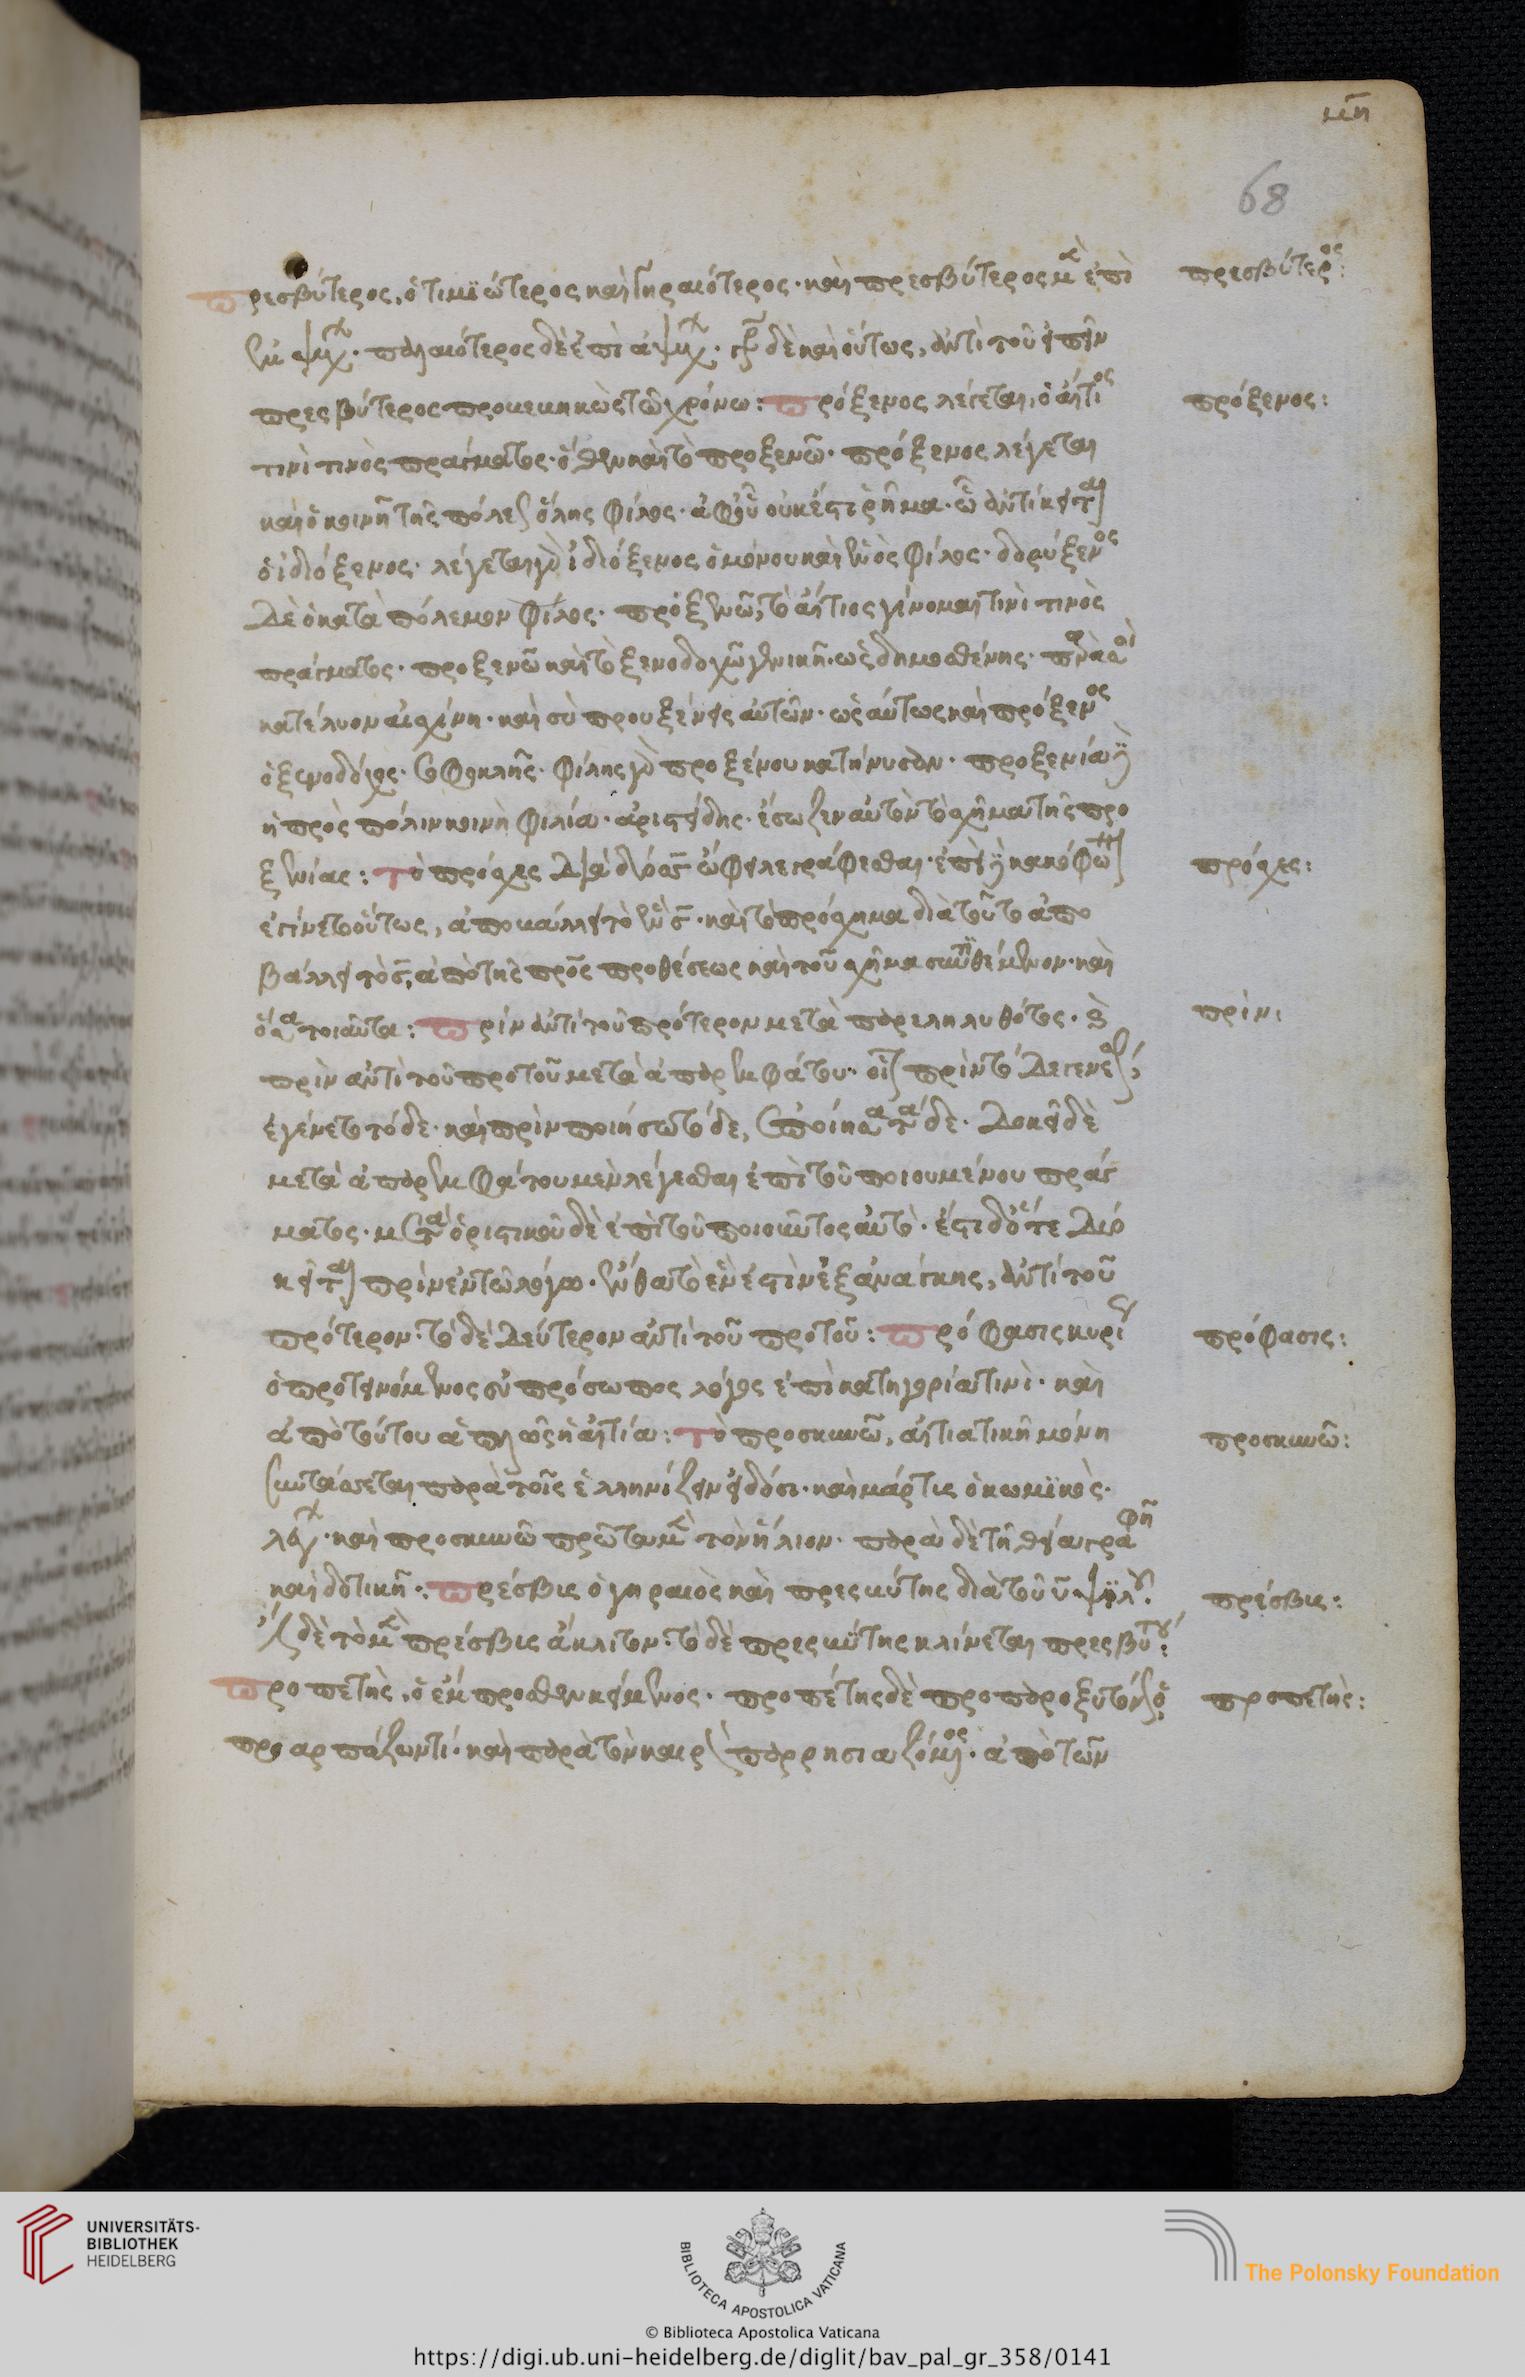 μη
68
πρεσβύτερος, ὁ τιμιώτερος καὶ γηραιότερος· καὶ πρεσβύτερος μ ἐπὶ
πρεσβύτερος:
ἐμψύχ· παλαιότερος δὲ ἐπὶ ἀψύχ· γρ δὲ καὶ οὕτως, ἀντὶ τοῦ εἰπεῖν
πρεσβύτερος προκεκηκὼς τῶ χρόνω: πρόξενος λέγεται, ὁ αἴτιος
πρόξενος:
τινί τινὸς πράγματος· ὅθεν καὶ τὸ προξενῶ· πρόξενος λέγεται
καὶ ὁ κοινῆ τῆς πόλεως ὅλης φίλος· ἀφ' οὗ οὐκ ἔστι ῥῆμα· ὧ ἀντίκειται
ὁ ἰδιόξενος· λέγεται γὰρ ἰδιόξενος ὁ μόνου καὶ ἑνὸς φίλος· δορύξενος
δὲ ὁ κατὰ πόλεμον φίλος· προξενῶ, τὸ αἴτιος γίνομαι τινί τινὸς
πράγματος· προξενῶ καὶ τὸ ξενοδοχῶ γενικῆ· ὡς δημοσθένης·
κατέλυον αἰσχίνη· καὶ σὺ προυξένεις αὐτῶν· ὡσαύτως καὶ πρόξενος
ὁ ξενοδόχος· σοφοκλῆς· φίλης γὰρ προξένου κατήνυσαν· προξενία
ἡ πρὸς πόλιν κοινὴ φιλία· ἀριστείδης· ἔσωζεν αὐτὸν τὸ σχῆμα τῆς προ
ξενίας: τὸ πρόσχες διὰ δύο σ ὤφειλε γράφεσθαι· ἐπεὶ κακόφω
πρόσχες:
ἐγίνετο οὕτως, ἀποβάλλει τὸ ἓν σ· καὶ τὸ πρόσχημα διὰ τοῦτο ἀπο
βάλλει τὸ σ, ἀπὸ τῆς πρὸς προθέσεως καὶ τοῦ σχῆμα συντιθέμενον· καὶ
ὅσα τοιαῦτα: πρὶν ἀντὶ τοῦ πρότερον μετὰ παρεληλυθότος·
πρίν:
πρὶν ἀντὶ τοῦ προτοῦ μετὰ ἀπαρεμφάτου· οἷον πρὶν τόδε γενέσθαι,
ἐγένετο τόδε· καὶ πρὶν ποιήσω τόδε, ἐποίησα τάδε· δοκεῖ δὲ
μετὰ ἀπαρεμφάτου μὲν λέγεσθαι ἐπὶ τοῦ ποιουμένου πράγ
ματος· μετὰ ὁριστικοῦ δὲ ἐπὶ τοῦ ποιοῦντος αὐτό· ἔστι δ' ὅτε δύο
κεῖται πρὶν ἐν τῶ λόγω· ἔνθα τὸ ἓν ἐστὶν ἐξ ἀνάγκης, ἀντὶ τοῦ
πρότερον· τὸ δὲ δεύτερον ἀντὶ τοῦ προτοῦ: πρόφασις κυρί
πρόφασις:
ὁ προτεινόμενος εὐπρόσωπος λόγος ἐπὶ κατηγορία τινί· καὶ
ἀπὸ τούτου ἁπλῶς ἡ αἰτία: τὸ προσκυνῶ, αἰτιατικῆ μόνη
προσκυνῶ:
συντάσσεται παρὰ τοῖς ἑλληνίζειν εἰδόσι· καὶ μάρτυς ὁ κωμικὸς·
λέγ· καὶ προσκυνῶ πρῶτα μ τὸν ἥλιον· παρὰ δὲ τῆ θεία γραφῆ
καὶ δοτικῆ: πρέσβις ὁ γηραιὸς καὶ πρεσβύτης διὰ τοῦ υ ψιλοῦ·
πρέσβις:
δὲ τὸ μ πρέσβις ἄκλιτον· τὸ δὲ πρεσβύτης κλίνεται πρεσβύτου:
προπετὴς, ὁ ἔμπροσθεν κείμενος· προπέτης δὲ προπαροξυτόνως ὁ
προπετὴς:
προαρπάζων τί· καὶ παρὰ τὸν καιρὸν παρρησιαζόμενος· ἀπὸ τῶν
UNIVERSITÄTS-
BIBLIOTHEK
HEIDELBERG
BIBLIOTECA APOSTOLICA VATICANA
The Polonsky Foundation
© Biblioteca Apostolica Vaticana
https://digi.ub.uni-heidelberg.de/diglit/bav_pal_gr_358/0141